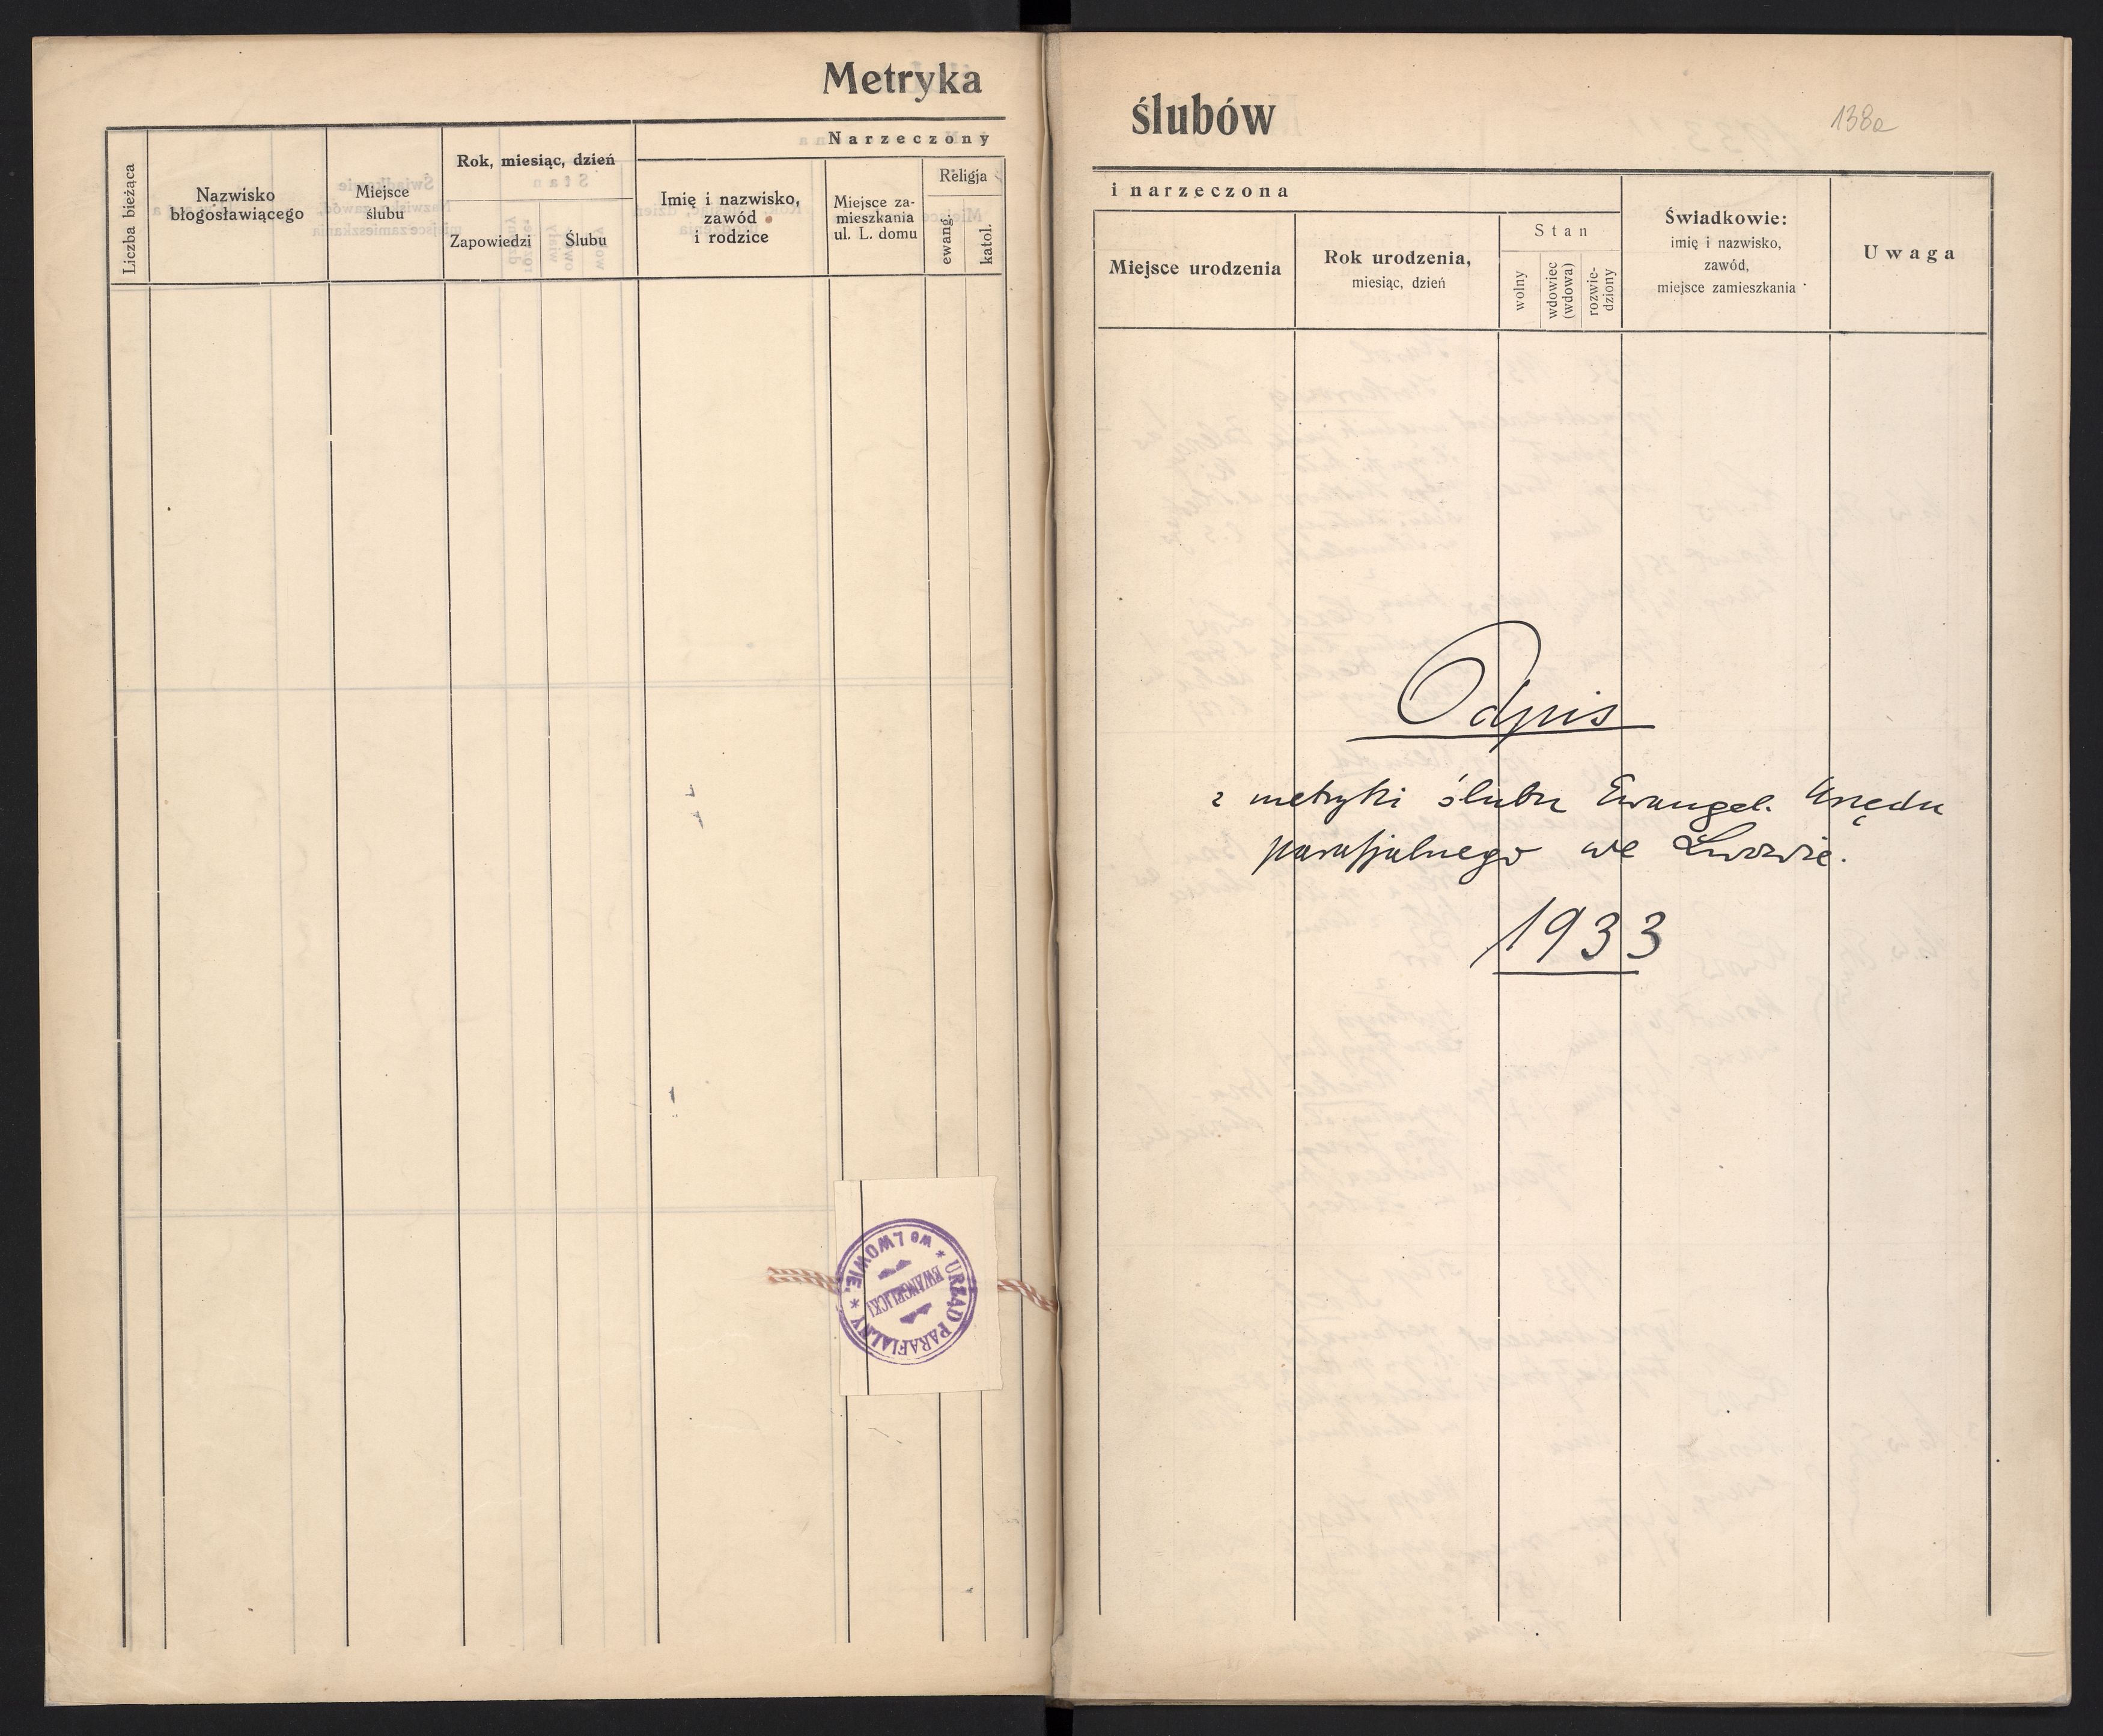 Metryka
Liczba bieżąca
Nazwisko
błogosławiącego
Miejsce
ślubu
Rok, miesiąc, dzień
Zapowiedzi
Ślubu
Narzeczony
Imię i nazwisko,
zawód
i rodzice
Miejsce za-
mieszkania
ul. L. domu
Religja
ewang.
katol.
URZĄD PARAFIALNY
EWANGELICKI
we LWOWIE.
ślubów
138a
i narzeczona
Miejsce urodzenia
Rok urodzenia,
miesiąc, dzień
Stan
wolny
wdowiec
(wdowa)
rozwie-
dziony
Świadkowie:
imię i nazwisko,
zawód,
miejsce zamieszkania
Uwaga
Odpis
z metryki ślubu Ewangel. Urzędu
parafjalnego we Lwowie.
1933